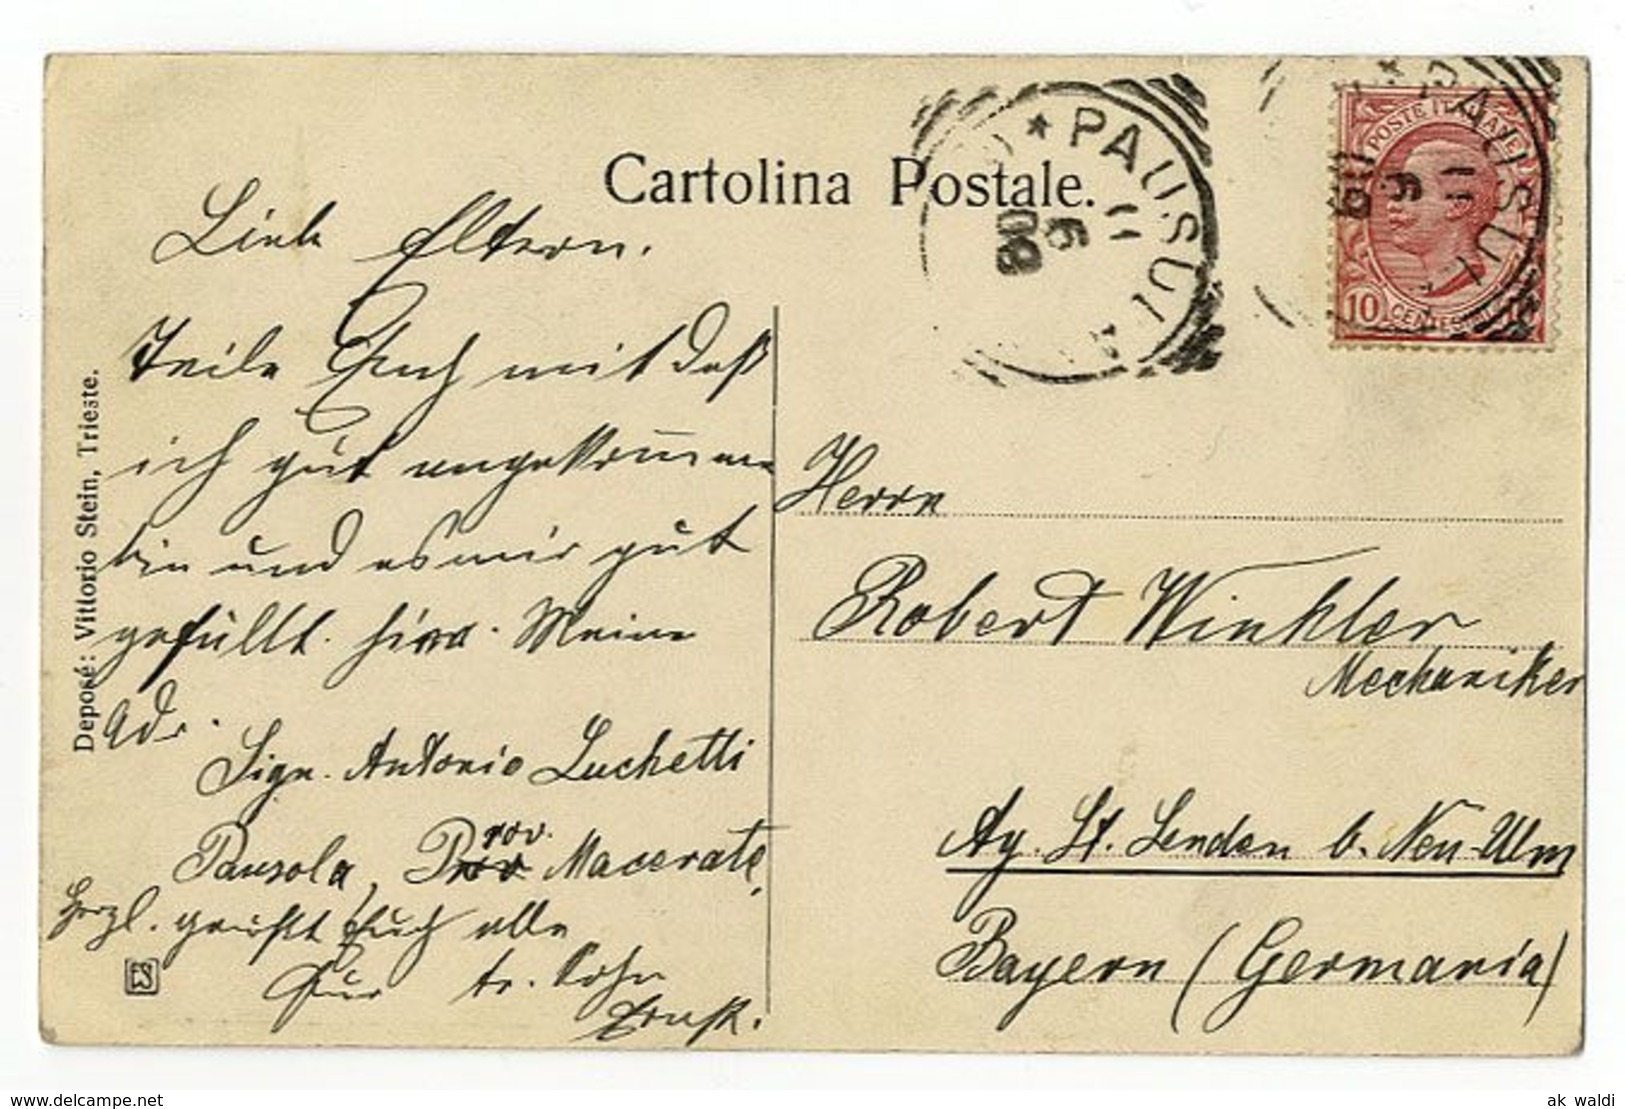 Cartolina Postale.
Lieb Eltern.
Teile Euch mit daß
ich gut angekommen
bin und es mir gut
gefällt. hier. Meine
Adr.
Sign. Antonio Luchetti
Pausola, Prov. Macerata,
Herzl. grüßt Euch alle
Eur tr. Sohn
Ernst.
Deposé: Vittorio Stein, Trieste.
ES
* PAUSULA
11
6
09
* PAUSUL
11
6
09
POSTE ITALIANE
10
CENTESIMI
Herrn
Robert Winkler
Mechaniker
b. Neu-Ulm
Bayern (Germania)
www.delcampe.net
ak waldi